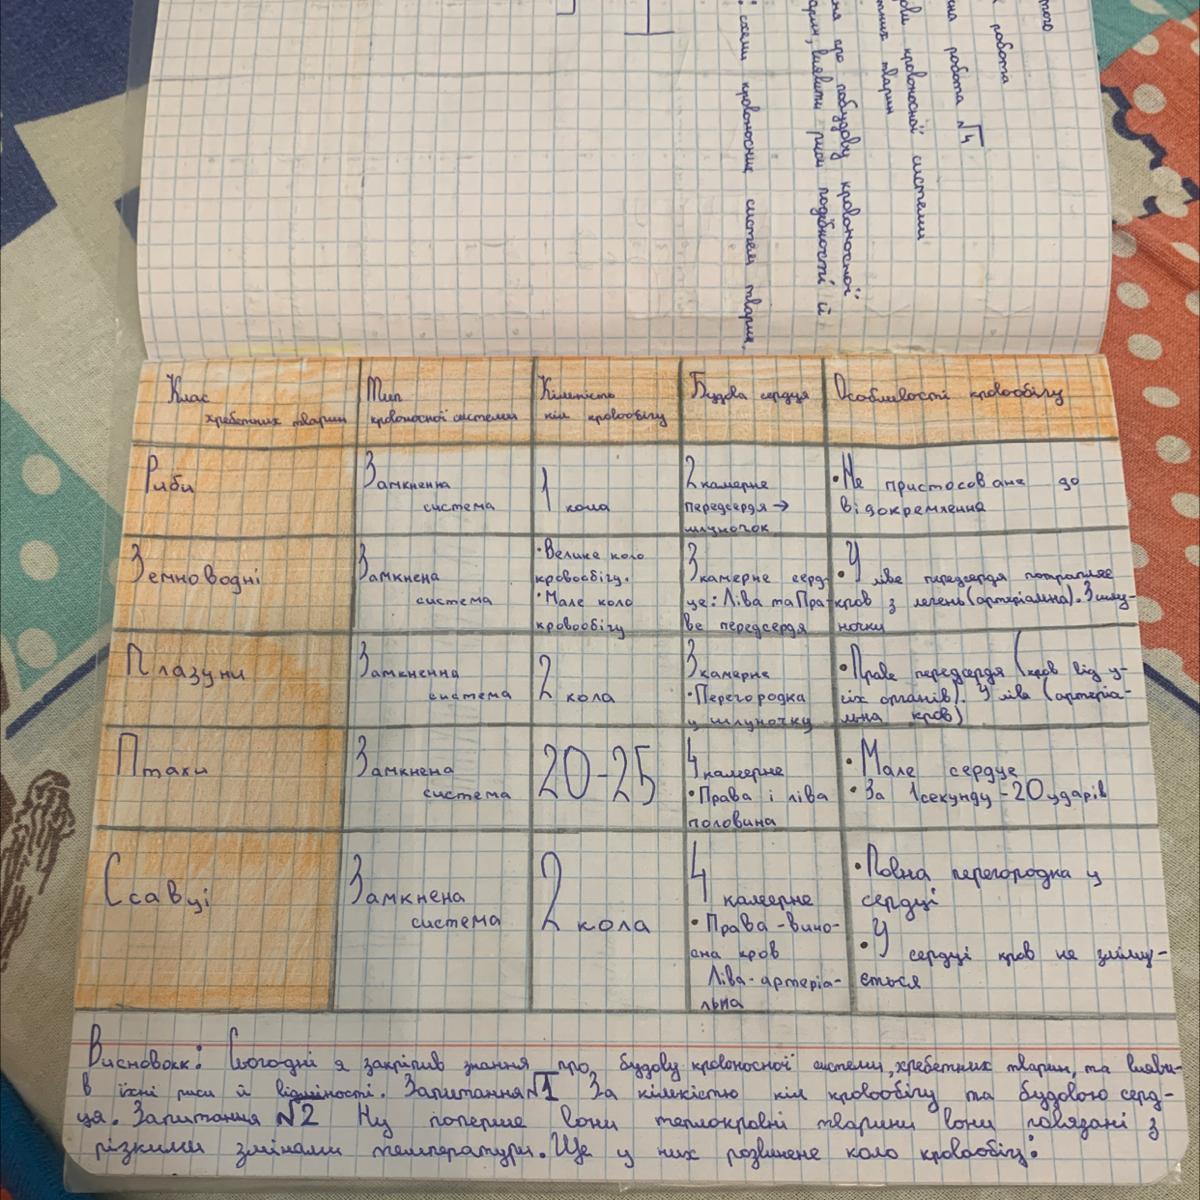 того
робота
на робота №4
ови кровоносної системи
тних тварин
ня про побудову кровоносної
арин, виявити риси подібності й
: схеми кровоносних систем тварин,
Клас хребетних тварин
Тип кровоносної системи
Кількість кіл кровообігу
Будова серця
Особливості кровообігу
Риби
Замкненна
система
1 кола
2 камерне
передсердя →
шлуночок
• Не пристосоване до
відокремлення
Земноводні
Замкнена
система
• Велике коло
кровообігу.
• Мале коло
кровообігу
3 камерне серд-
це: Ліва та Пра-
ве передсердя
• У ліве передсердя потрапляє
кров з легень (артеріальна). З шлу-
ночки
Плазуни
Замкненна
система
2 кола
3 камерне
• Перегородка
у шлуночку
• Праве передсердя (кров від у-
сіх органів). У ліва (артеріа-
льна кров)
Птахи
Замкнена
система
20-25
4 камерне
• Права і ліва
половина
• Мале сердце
• За 1 секунду - 20 ударів
Ссавці
Замкнена
система
2 кола
4 камерне
• Права - вино-
сна кров
Ліва - артеріа-
льна
• Повна перегородка у
сердці
• У сердці кров не зміму-
ється
Висновок: Сьогодні я закріпив знання про будову кровоносної системи, хребетних тварин, та вияви-
в їхні риси й відміності. Запитання №1 За кількістю кіл кровообігу та будовою серд-
ця. Запитання №2 Ну поперше вони теплокровні тварини вони повязані з
різкими змінами температури. Ще у них розвинене коло кровообіг: